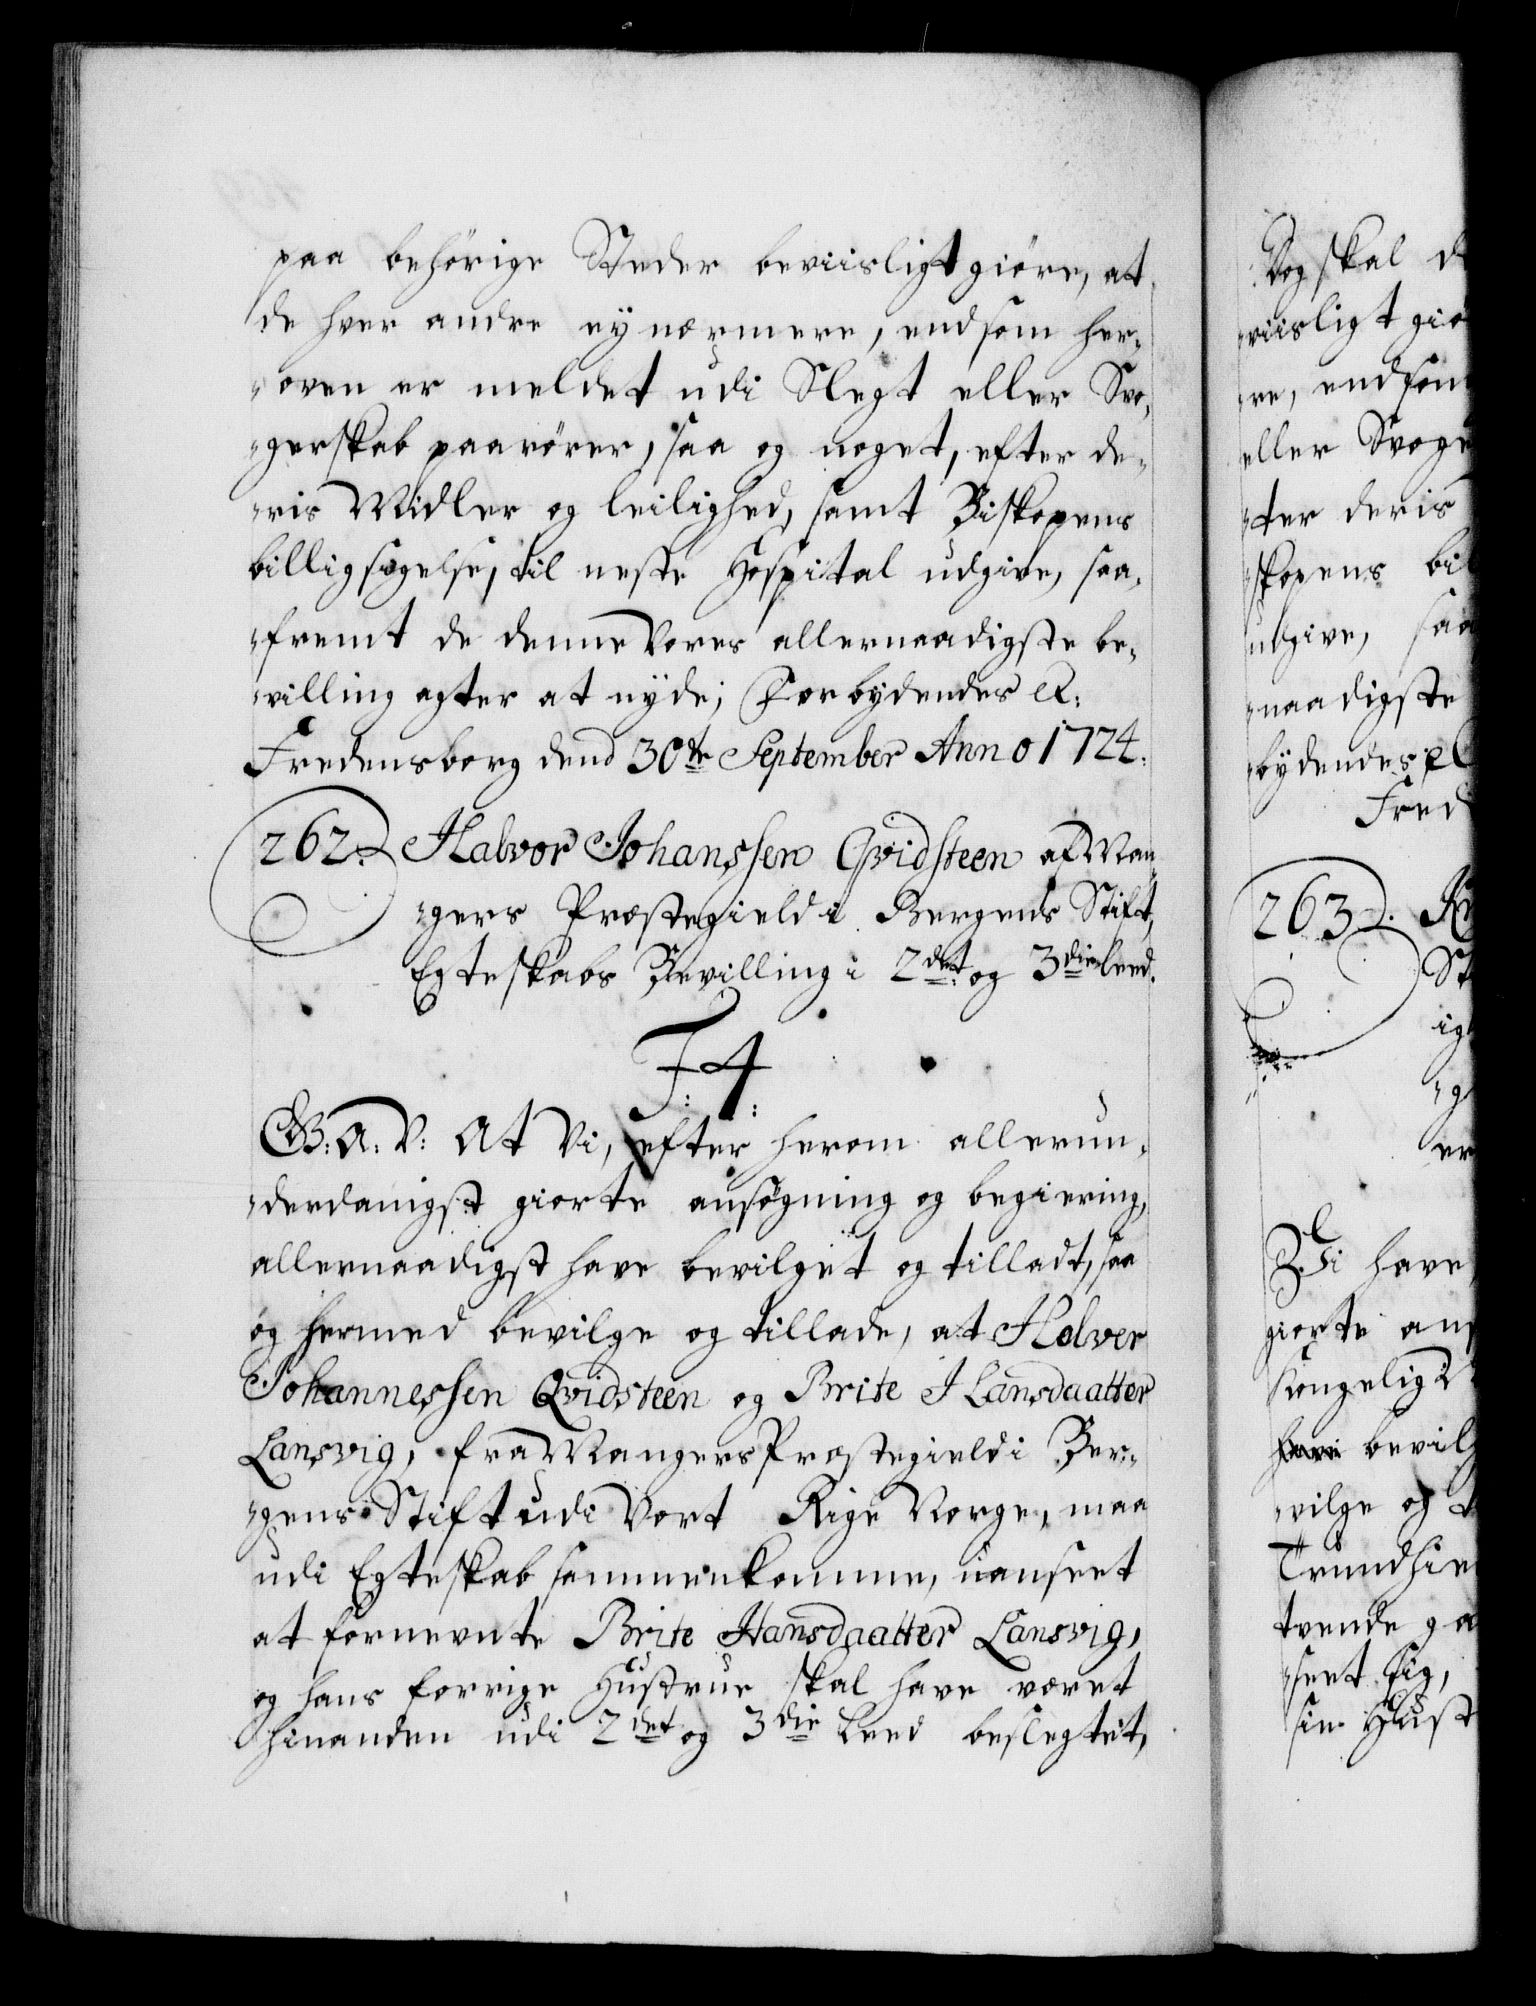 paa behörige Steder beviisligt giöre, at
de hver andre ey nærmere, end som her-
oven er meldet udi Slegt eller Svo-
gerskab paarörer, saa og noget, efter de-
ris Midler og leilighed, samt Biskopens
billigsigelse, til neste Hospital udgive, saa-
fremt de denne Vores allernaadigste be-
villing agter at nyde; Forbydendes &:
Fredensborg dend 30te September Anno 1724.
262. Halvor Johanssen Qvidsteen af Man-
gers Præstegield i Bergens Stift,
Egteskabs Bevilling i 2det og 3die leed.
F: 4:
G: A: V: At Vi, efter herom allerun-
derdanigst giorte ansögning og begiering,
allernaadigst have bevilget og tilladt, saa
og hermed bevilge og tillade, at Holver
Johannessen Qvidsteen og Brite Hansdaatter
Lansvig, fra Mangers Præstegield i Ber-
gens Stift udi Vort Rige Norge, maa
udi Egteskab sammenkomme, uanseet
at fornevnte Brite Hansdaatter Lansvig,
og hans forrige Hustrue skal have været
hinanden udi 2det og 3die Leed beslegtet,
Dog skal
viisligt giö
re, end som
eller Svoge
ter deris
skopens bil
udgive, saa
naadigste
bydendes &
Fred
263.
St
Vi have
giorte ans
Kongelig
bevilg
vilge og t
Trundhie
tvende g
seet sig,
sin Hust